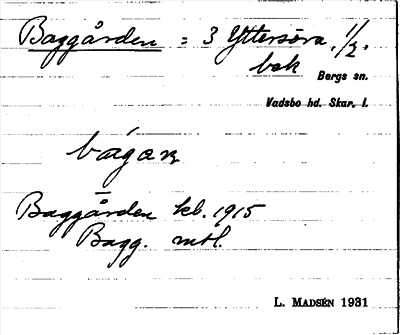 Baggården = 3 Yttersöra, 1/2.
bok
Bergs sn.
Vadsbo hd. Skar. l.
bágan
Baggården kb. 1915
Bagg. mtl.
L. MADSÉN 1931